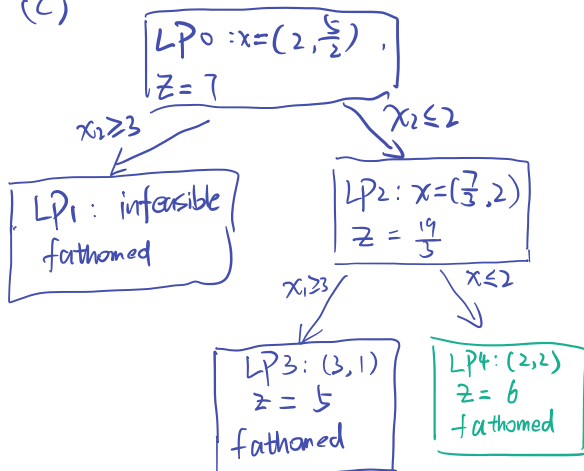 (c)
LP0 : x=(2, 5/2) .
Z = 7
x₂≥3
x₂≤2
LP1 : infeasible
fathomed
LP2: x=(7/3, 2)
Z = 19/3
x₁≥3
x≤2
LP3: (3,1)
Z = 5
fathomed
LP4: (2,2)
Z = 6
fathomed